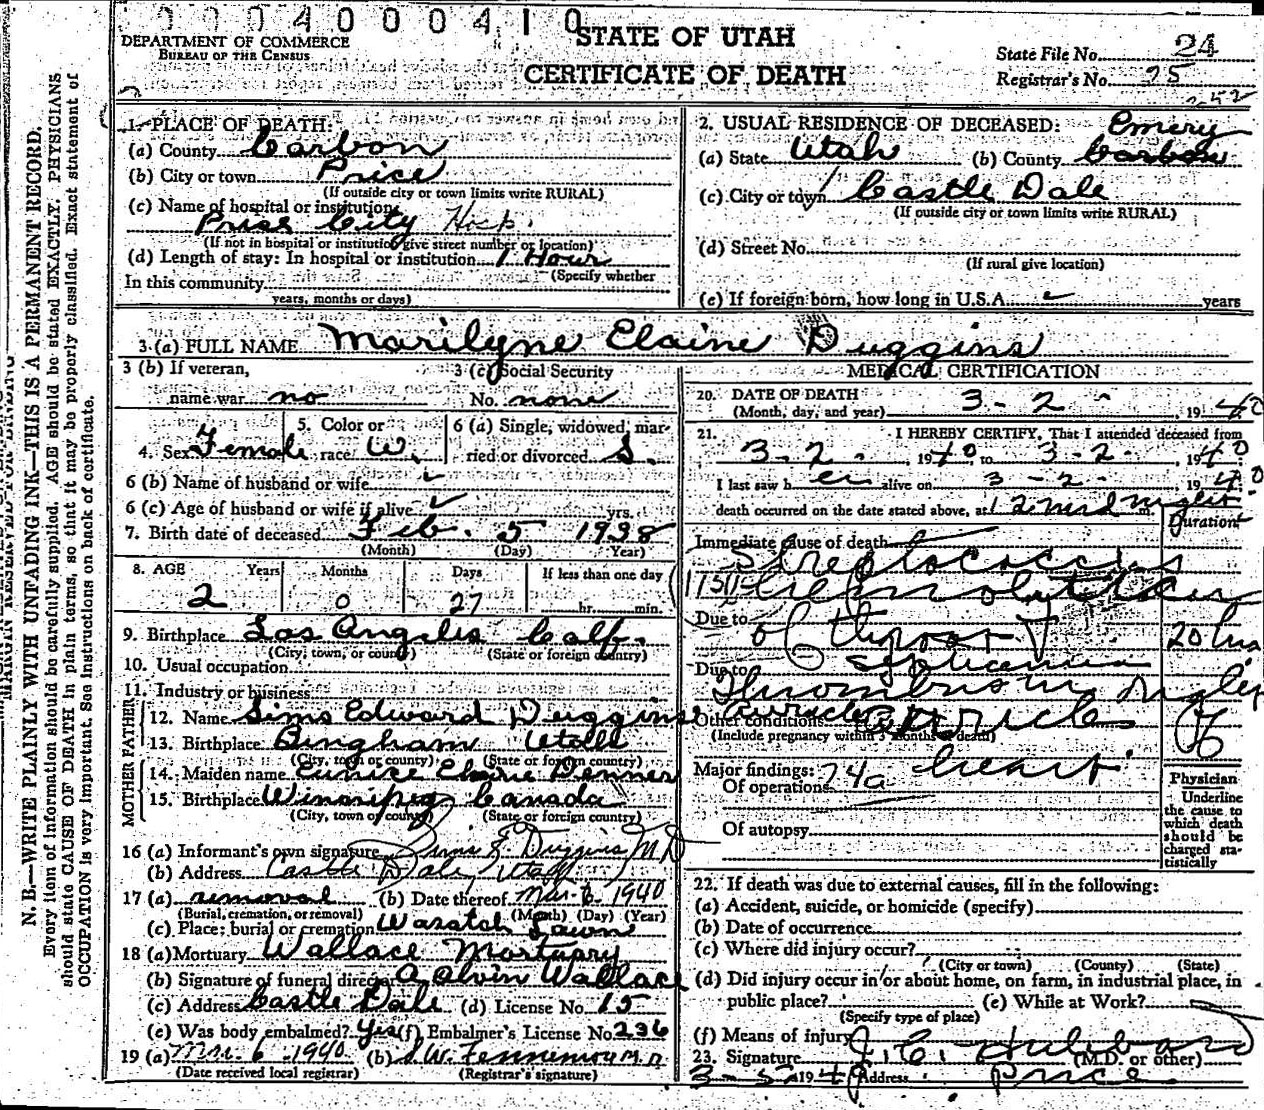 0 0 0 4 0 0 0 4 1 0
DEPARTMENT OF COMMERCE
BUREAU OF THE CENSUS
STATE OF UTAH
CERTIFICATE OF DEATH
State File No. 24
Registrar's No. 25
252
N. B.—WRITE PLAINLY WITH UNFADING INK—THIS IS A PERMANENT RECORD.
Every item of information should be carefully supplied. AGE should be stated EXACTLY. PHYSICIANS
should state CAUSE OF DEATH in plain terms, so that it may be properly classified. Exact statement of
OCCUPATION is very important. See instructions on back of certificate.
1. PLACE OF DEATH:
(a) County Carbon
(b) City or town Price
(If outside city or town limits write RURAL)
(c) Name of hospital or institution:
Price City Hosp.
(If not in hospital or institution give street number or location)
(d) Length of stay: In hospital or institution 1 Hour
(Specify whether
In this community
years, months or days)
2. USUAL RESIDENCE OF DECEASED: Emery
(a) State Utah (b) County Carbon
(c) City or town Castle Dale
(If outside city or town limits write RURAL)
(d) Street No.
(If rural give location)
(e) If foreign born, how long in U.S.A. years
3 (a) FULL NAME Marilyne Elaine Duggins
3 (b) If veteran,
name war no
3 (c) Social Security
No. none
4. Sex Female
5. Color or
race W.
6 (a) Single, widowed, mar-
ried or divorced S.
6 (b) Name of husband or wife
6 (c) Age of husband or wife if alive yrs.
7. Birth date of deceased Feb. 5 1938
(Month) (Day) Year)
8. AGE Years Months Days If less than one day
2 0 27 hr. min.
9. Birthplace Los Angeles Calf.
(City, town, or county) (State or foreign country)
10. Usual occupation
11. Industry or business
FATHER
12. Name Sims Edward Duggins
13. Birthplace Bingham Utah
(City, town or county) (State or foreign country)
MOTHER
14. Maiden name Eunice
15. Birthplace Winnipeg Canada
(City, town or county) (State or foreign country)
16 (a) Informant's own signature Sims E. Duggins MD
(b) Address Castle Dale, Utah
17 (a) removal (b) Date thereof Mar. 6 1940
(Burial, cremation, or removal) (Month) (Day) (Year)
(c) Place: burial or cremation Wasatch Lawn
18 (a) Mortuary Wallace Mortuary
(b) Signature of funeral director A Alvin Wallace
(c) Address Castle Dale (d) License No. 15
(e) Was body embalmed? Yes (f) Embalmer's License No. 236
19 (a) Mar. 6 1940 (b) J.W. Fennemoy M.D.
(Date received local registrar) (Registrar's signature)
MEDICAL CERTIFICATION
20. DATE OF DEATH
(Month, day, and year) 3 - 2 - , 1940
21. I HEREBY CERTIFY, That I attended deceased from
3 - 2 - , 1940, to 3 - 2 - , 1940
I last saw her alive on 3 - 2 - 1940
death occurred on the date stated above, at 12 midnight m.
Duration
Immediate cause of death
Streptococcus
Hemolyticus
Due to of throat
20 hrs
Due to septicemia
Thrombus in right
Other conditions auricle
(Include pregnancy within 3 months of death)
Major findings: 74a heart
Of operations
Of autopsy
Physician
Underline
the cause to
which death
should be
charged sta-
tistically
22. If death was due to external causes, fill in the following:
(a) Accident, suicide, or homicide (specify)
(b) Date of occurrence
(c) Where did injury occur?
(City or town) (County) (State)
(d) Did injury occur in or about home, on farm, in industrial place, in
public place? (e) While at Work?
(Specify type of place)
(f) Means of injury
23. Signature J. C. Hubbard (M.D. or other)
3 - 5 - 1940 Address Price